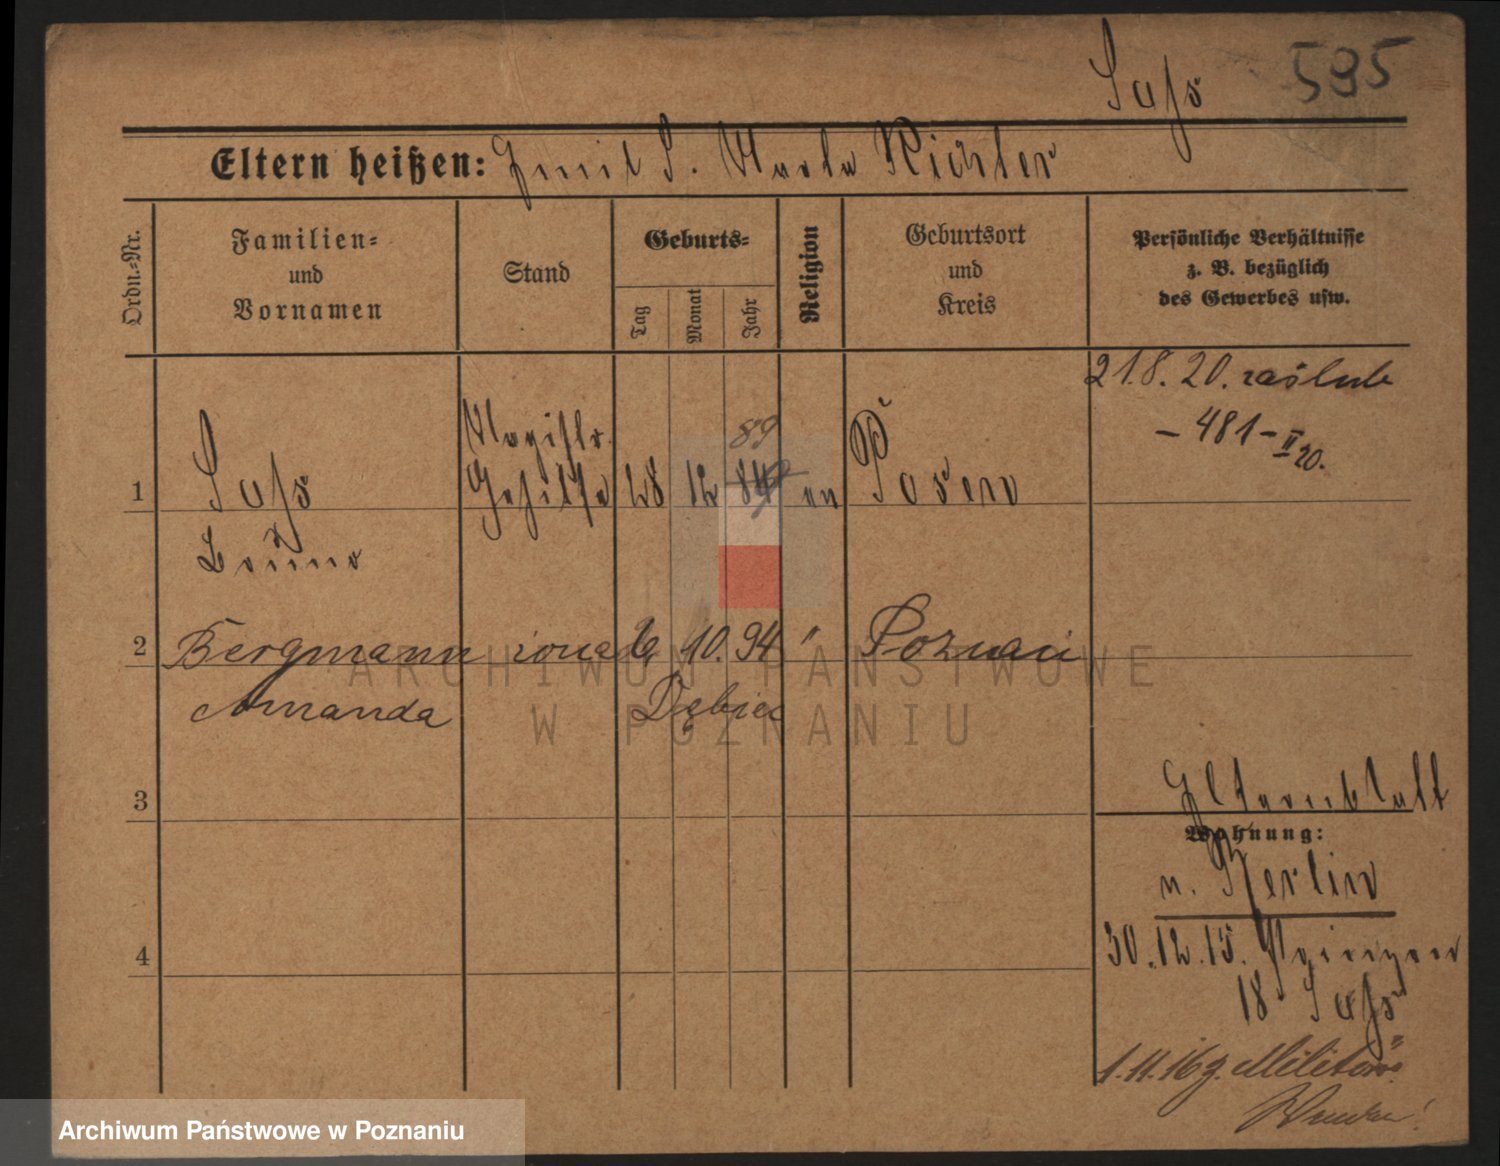 Sass 595
Eltern heißen: Emil S. Marta Richter
Ordn.-Nr.
Familien-
und
Vornamen
Stand
Geburts-
Tag
Monat
Jahr
Religion
Geburtsort
und
Kreis
Persönliche Verhältnisse
z. B. bezüglich
des Gewerbes usw.
21.8.20. zaślub
- 481 - II 20.
1 Sass
Magistr.
Gehilfe
28 12 84
89
ev
Posen
Bruno
2 Bergmann żona 10. 94 " Poznań
Amanda Dębiec
3
4
Elternblatt
Wohnung:
n. Berlin
30.12.15.
18 Sass
1.11.16 z. Militär
ARCHIWUM PAŃSTWOWE
W POZNANIU
Archiwum Państwowe w Poznaniu